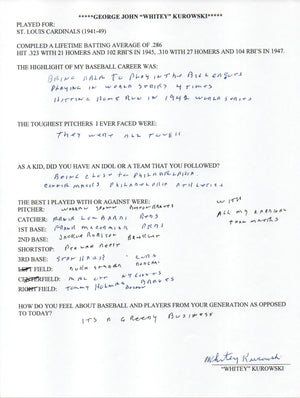 *****GEORGE JOHN "WHITEY" KUROWSKI*****
PLAYED FOR:
ST. LOUIS CARDINALS (1941-49)
COMPILED A LIFETIME BATTING AVERAGE OF .286
HIT .323 WITH 21 HOMERS AND 102 RBI'S IN 1945, .310 WITH 27 HOMERS AND 104 RBI'S IN 1947.
THE HIGHLIGHT OF MY BASEBALL CAREER WAS:
BEING ABLE TO PLAY IN THE BIG LEAGUES
PLAYING IN WORLD SERIES 4 TIMES
HITTING HOME RUN IN 1942 WORLD SERIES
THE TOUGHEST PITCHERS I EVER FACED WERE:
THEY WERE ALL TOUGH
AS A KID, DID YOU HAVE AN IDOL OR A TEAM THAT YOU FOLLOWED?
BEING CLOSE TO PHILADELPHIA
CONNIE MACKS PHILADELPHIA ATHLETICS
THE BEST I PLAYED WITH OR AGAINST WERE: WITH
PITCHER: WARREN SPAHN BOSTON BRAVES ALL MY CARDINAL
CATCHER: LOMBARDI REDS TEAM MATES
1ST BASE: FRANK McCORMICK REDS
2ND BASE: JACKIE ROBINSON BROOKLYN
SHORTSTOP: PEE WEE REESE
3RD BASE: STAN HACK CUBS
LEFT FIELD:
CENTERFIELD: MEL OTT NY GIANTS
RIGHT FIELD: TOMMY HOLMES BRAVES
HOW DO YOU FEEL ABOUT BASEBALL AND PLAYERS FROM YOUR GENERATION AS OPPOSED
TO TODAY?
ITS A GREEDY BUSINESS
Whitey Kurowski
"WHITEY" KUROWSKI